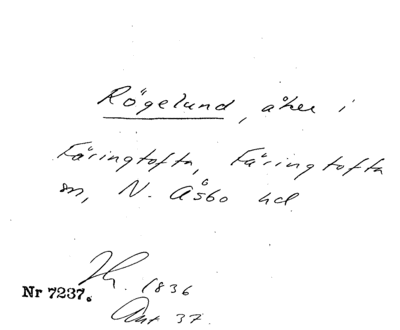 Rögelund, åker i
Färingtofta, Färingtofta
sn, N. Åsbo hd
Nr 7237.
1836
Ant 37.